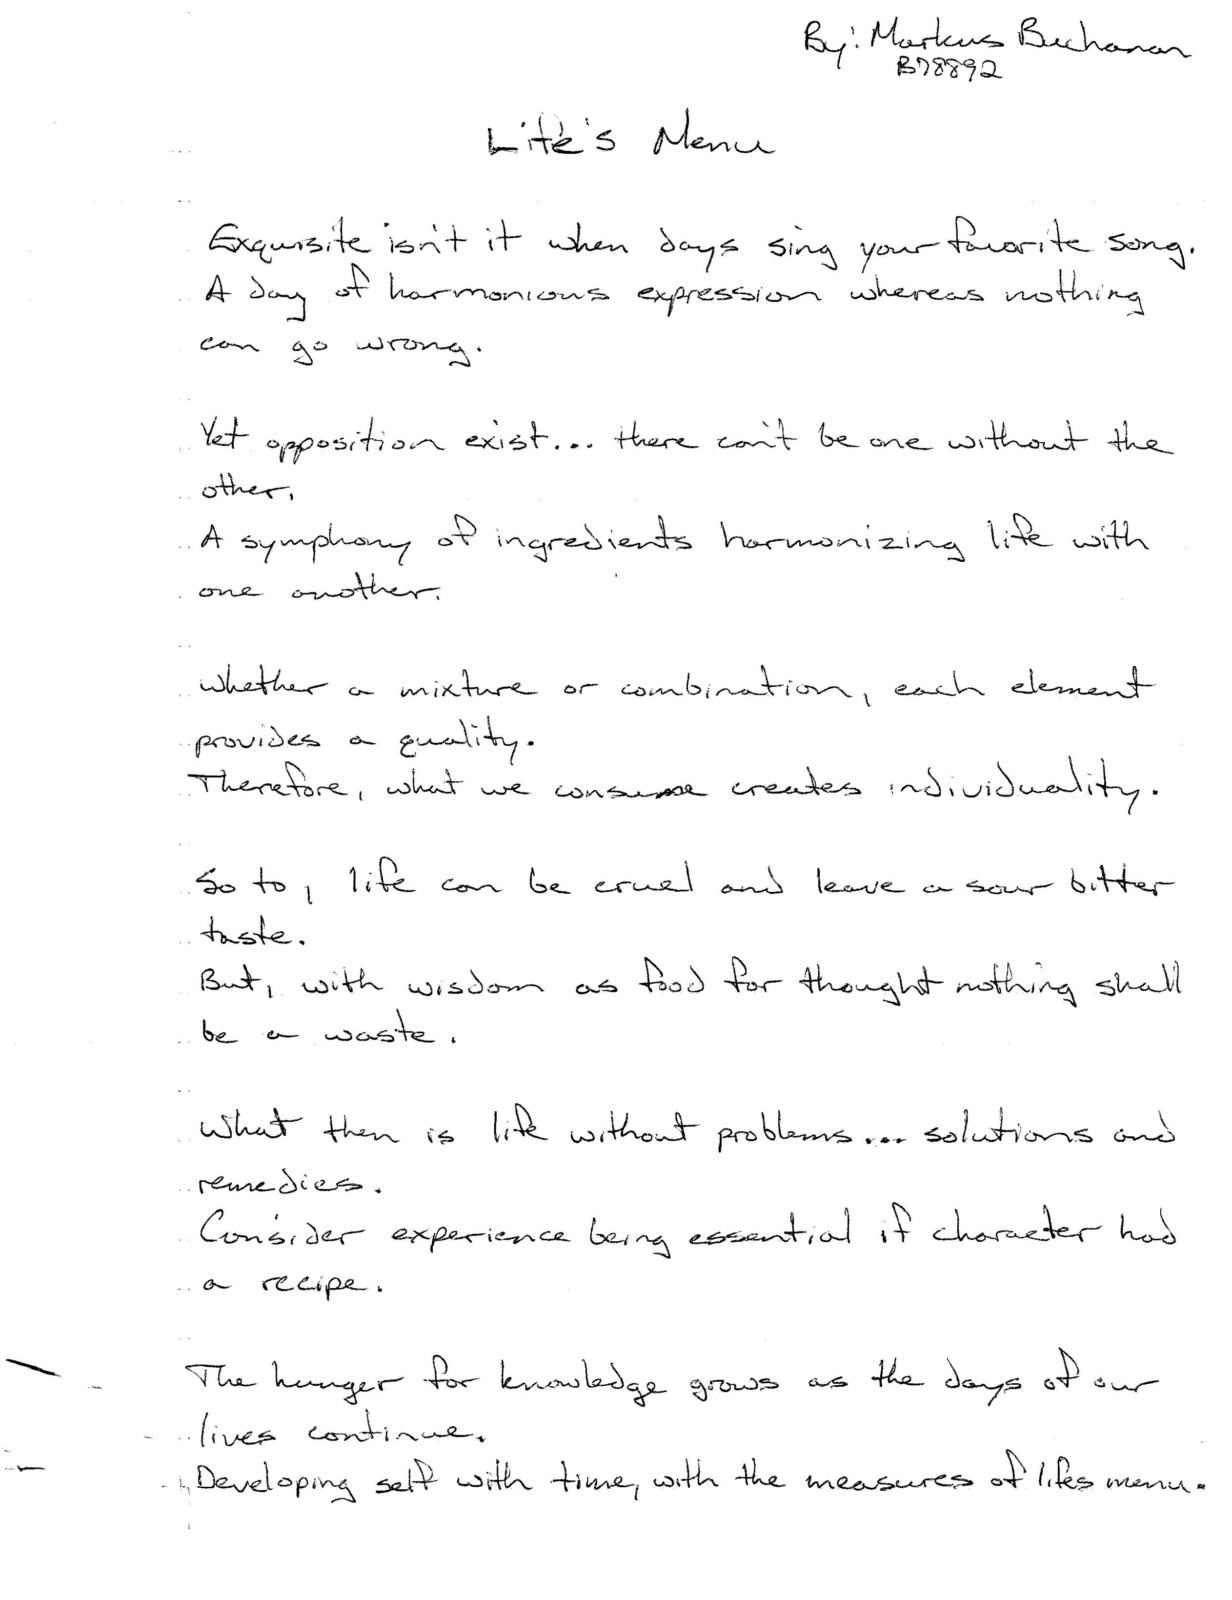 By: Markus Buchanan
B78892
Life's Menu
Exquisite isn't it when days sing your favorite song.
A day of harmonious expression whereas nothing
can go wrong.
Yet opposition exist... there can't be one without the
other.
A symphony of ingredients harmonizing life with
one another.
Whether a mixture or combination, each element
provides a quality.
Therefore, what we consume creates individuality.
So to, life can be cruel and leave a sour bitter
taste.
But, with wisdom as food for thought nothing shall
be a waste.
What then is life without problems... solutions and
remedies.
Consider experience being essential if character had
a recipe.
The hunger for knowledge grows as the days of our
lives continue.
Developing self with time, with the measures of lifes menu.